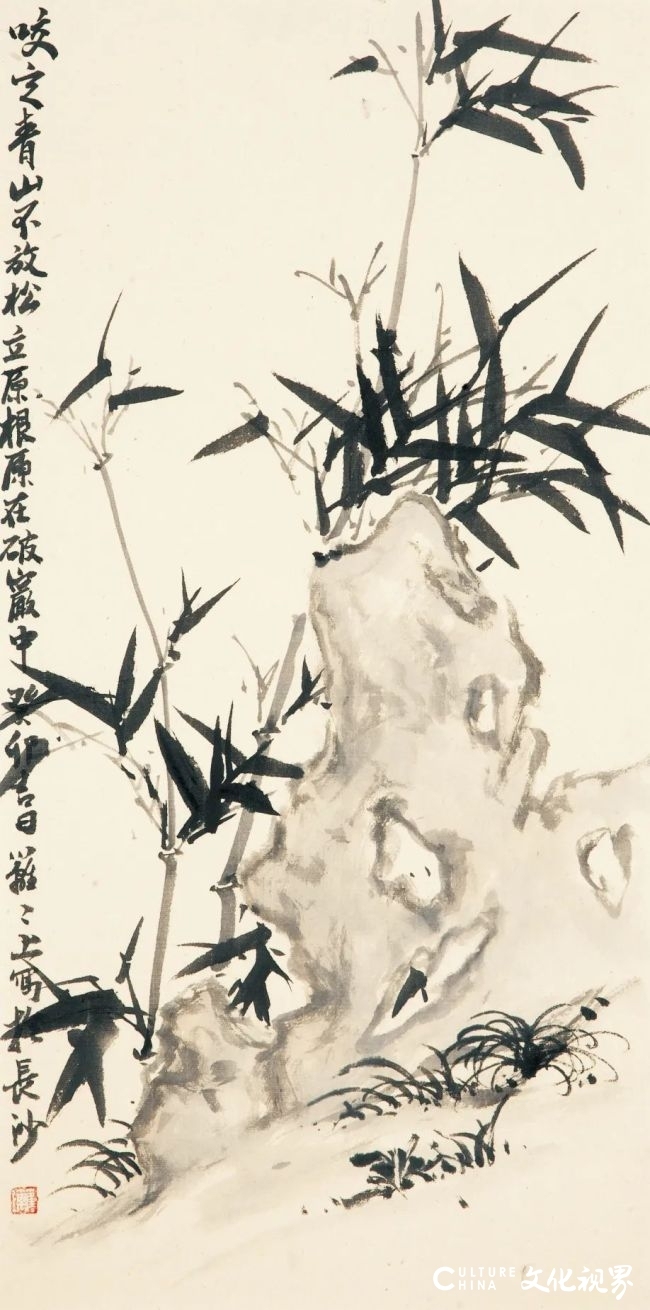 咬定青山不放松立原根原在破巖中癸卯吉日上寫於長沙
CULTURE
CHINA 文化视界